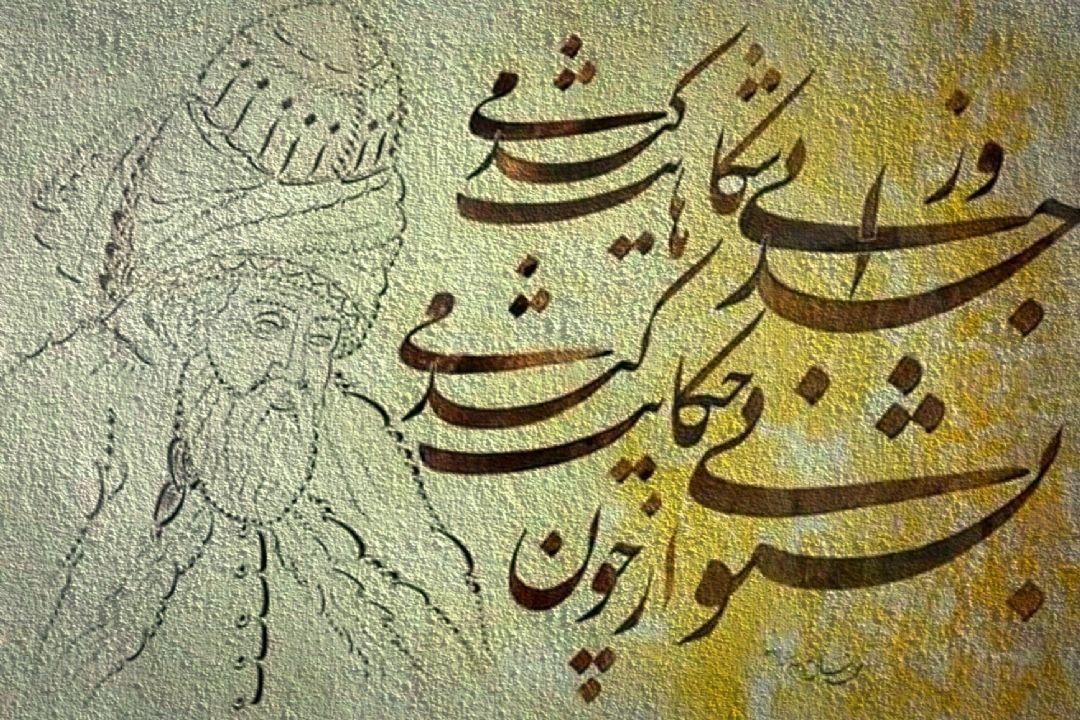 بشنو از نی چون حکایت می کند
وز جدایی ها شکایت می کند